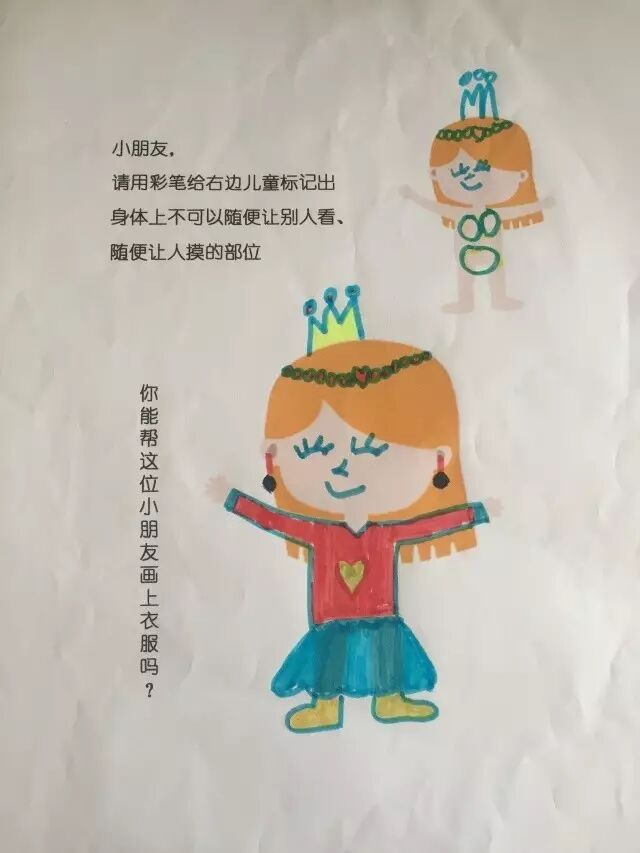 小朋友，
请用彩笔给右边儿童标记出
身体上不可以随便让别人看、
随便让人摸的部位
你能帮这位小朋友画上衣服吗？